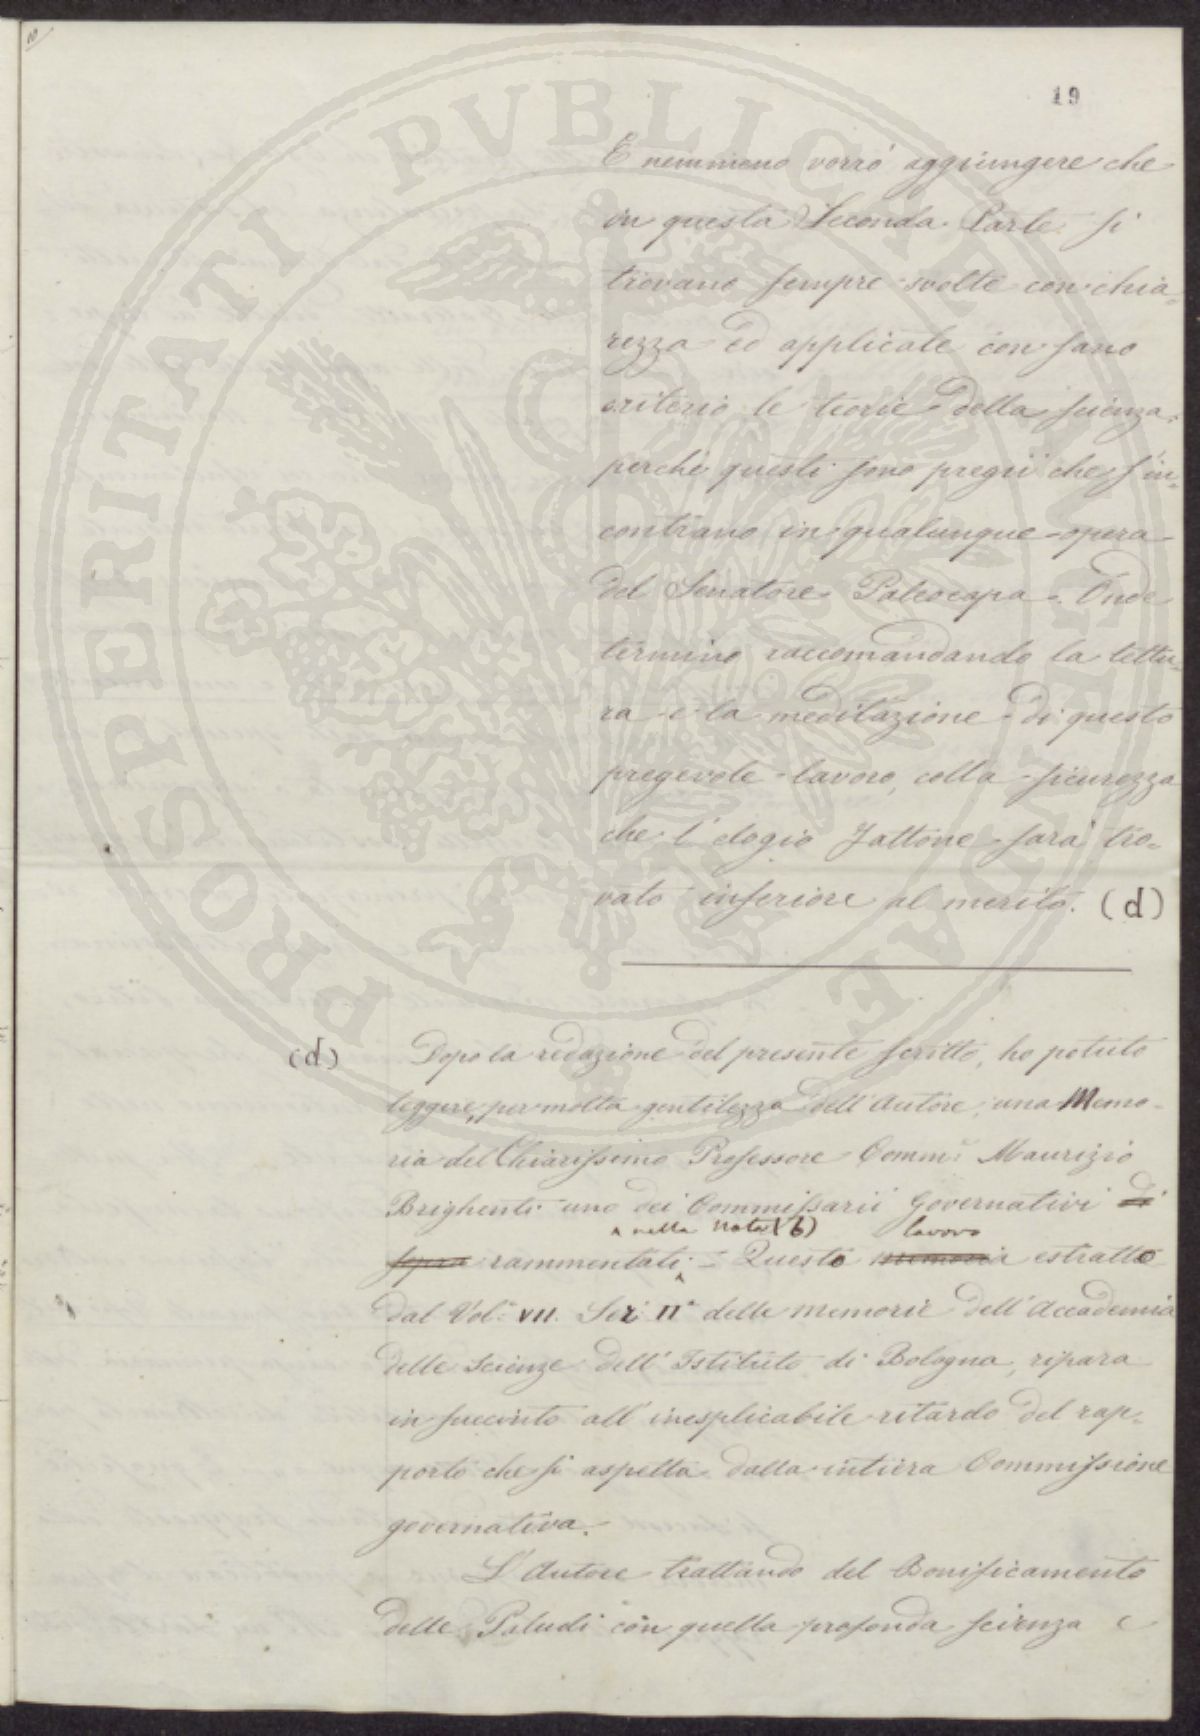 19
E nemmeno vorrò aggiungere che
in questa Seconda Parte si
trovano sempre svolte con chia=
rezza ed applicate con sano
criterio le teorie della scienza;
perchè questi sono pregii che s'in=
contrano in qualunque opera
del Senatore Paleocapa. Onde
termino raccomandando la lettu=
ra e la meditazione di questo
pregevole lavoro, colla sicurezza
che l'elogio fattone sarà tro=
vato inferiore al merito. (d)
(d) Dopo la redazione del presente scritto, ho potuto
leggere, per molta gentilezza dell'Autore, una Memo=
ria del Chiarissimo Professore Comm. Maurizio
Brighenti uno dei Commissarii Governativi di
nella nota (b) lavoro
sopra rammentati. = Questo memoria estratto
dal Vol. VII. Ser. II.a delle memorie dell'Accademia
delle Scienze dell'Istituto di Bologna, ripara
in succinto all'inesplicabile ritardo del rap=
porto che si aspetta dalla intiera Commissione
governativa.
L'Autore trattando del Bonificamento
delle Paludi con quella profonda scienza e
PROSPERITATI PVBLICAE